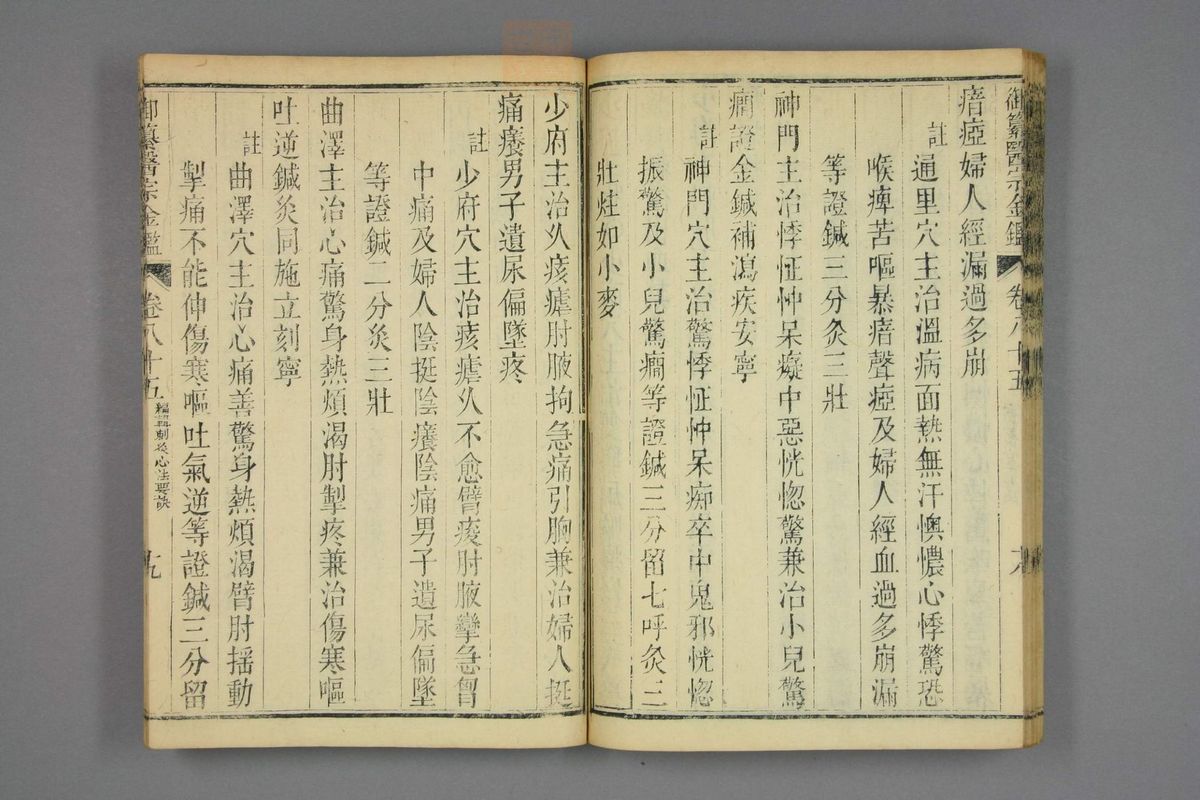 御纂醫宗金鑑 卷八十五
瘖瘂婦人經漏過多崩
註 通里穴主治溫病面熱無汗懊憹心悸驚恐
喉痺苦嘔暴瘖聲瘂及婦人經血過多崩漏
等證鍼三分灸三壯
神門主治悸怔忡呆癡中惡恍惚驚兼治小兒驚
癎證金鍼補瀉疾安寧
註 神門穴主治驚悸怔忡呆痴卒中鬼邪恍惚
振驚及小兒驚癎等證鍼三分留七呼灸三
壯炷如小麥
少府主治久痎瘧肘腋拘急痛引胸兼治婦人挺
痛癢男子遺尿偏墜疼
註 少府穴主治痎瘧久不愈臂痠肘腋攣急胷
中痛及婦人陰挺陰癢陰痛男子遺尿偏墜
等證鍼二分灸三壯
曲澤主治心痛驚身熱煩渴肘掣疼兼治傷寒嘔
吐逆鍼灸同施立刻寧
註 曲澤穴主治心痛善驚身熱煩渴臂肘揺動
掣痛不能伸傷寒嘔吐氣逆等證鍼三分留
御纂醫宗金鑑 卷八十五 編輯刺灸心法要訣 十九